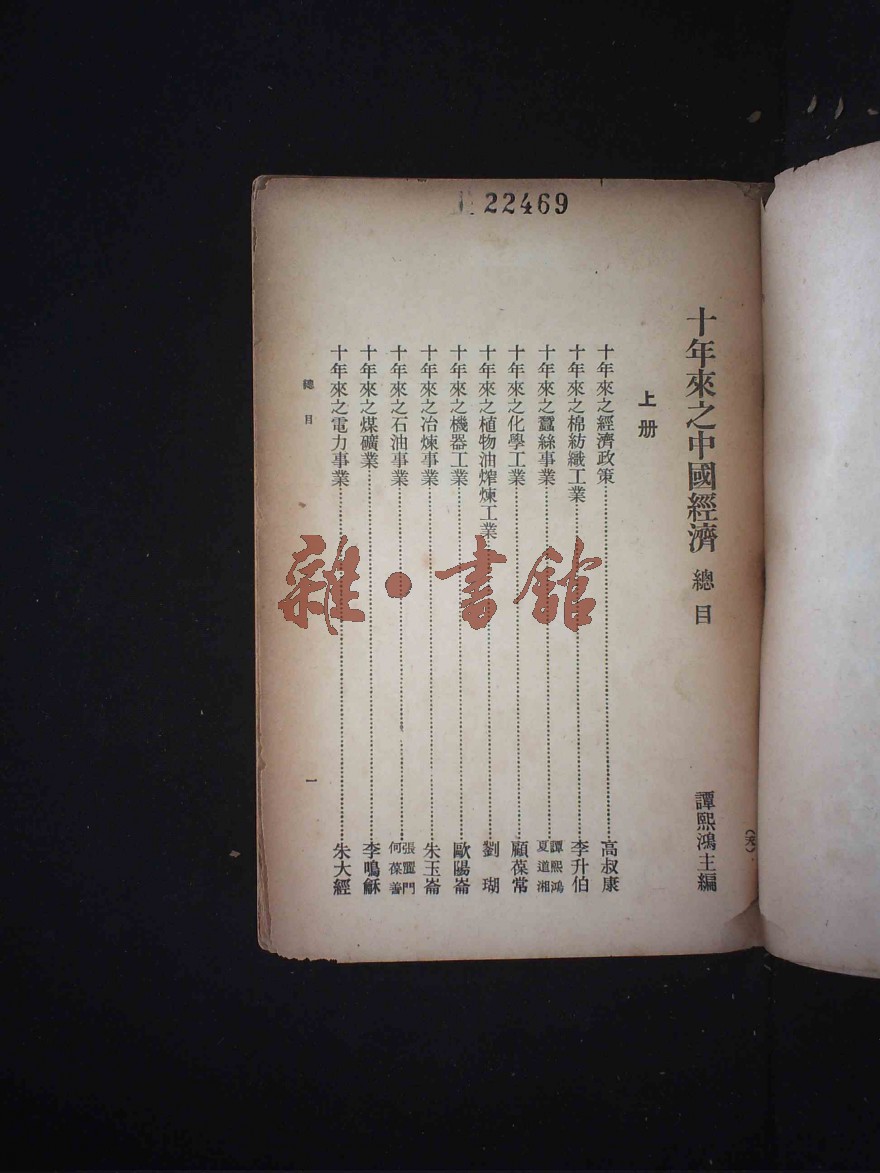 22469
十年來之中國經濟 總目
譚熙鴻主編
上册
十年來之經濟政策……高叔康
十年來之棉紡織工業……李升伯
十年來之蠶絲事業……譚熙鴻 夏道湘
十年來之化學工業……顧葆常
十年來之植物油煉工業……劉瑚
十年來之機器工業……歐陽崙
十年來之冶煉事業……朱玉崙
十年來之石油事業……張門 何葆善
十年來之煤礦業……李鳴龢
十年來之電力事業……朱大經
總目
一
雜·書館